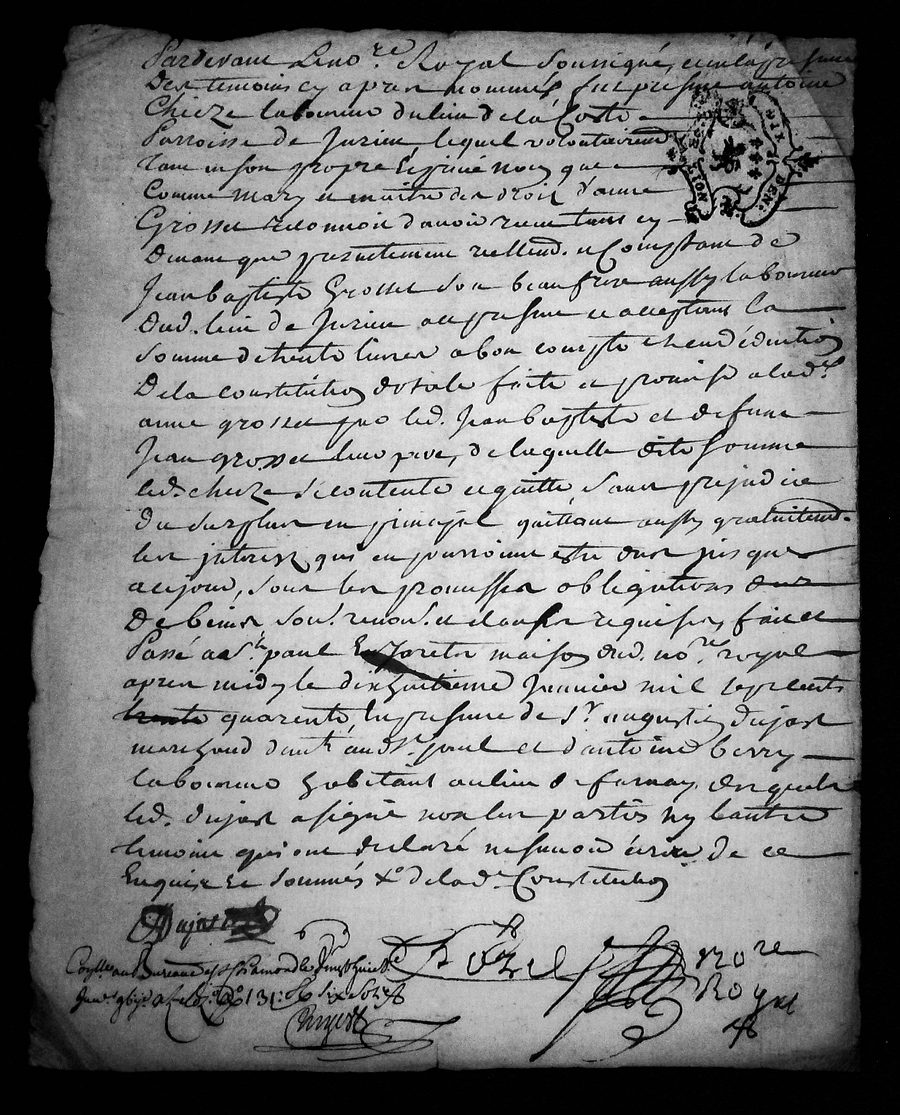 Pardevant Le no.re Royal Soussigné, et en la presence
Des temoins cy apres nommés fut present antoine
Chieze laboureur du lieu de la Coste
Parroisse de Jurieu, lequel volontairem.t
tant en son propre et privé nom que
Comme mary et maitre des droits d'anne
Grosset reconnoit d'avoir receu tant cy
devant que presentement reellem. et Comptant de
Jean baptiste Grosset son beaufrere aussy laboureur
dud. lieu de Jurieu au present et acceptant La
Somme de trente livres a bon compte et en deduction
De la constitution dotale faite et promise a lad.e
anne grosset par led. Jean baptiste et defunt
Jean grosset leur pere, de laquelle dite Somme
led. chieze se contente et quitte sans prejudice
du surplus en principal quittant aussy gratuitem.
les interest qui en pourroient estre dus jusques
a ce jour, sous les promesses obligations
De biens sou. renon. et clauses requises, fait et
Passé a St. paul En Jarets maison dud. no.re royal
apres midy le dixhuitieme Janvier mil sept cents
trente quarente, En presence de Sr. augustin dujast
marchand dud. St. paul et d'antoine berry
laboureur habitant au lieu de farnay, desquels
led. dujast a signé non les parties ny l'autre
temoins qui ont declaré ne savoir écrire de ce
Enquis et Sommés de lad. Constitution
Dujast
au Bureau de St. Chamond le
131: six sols
no.re
Royal